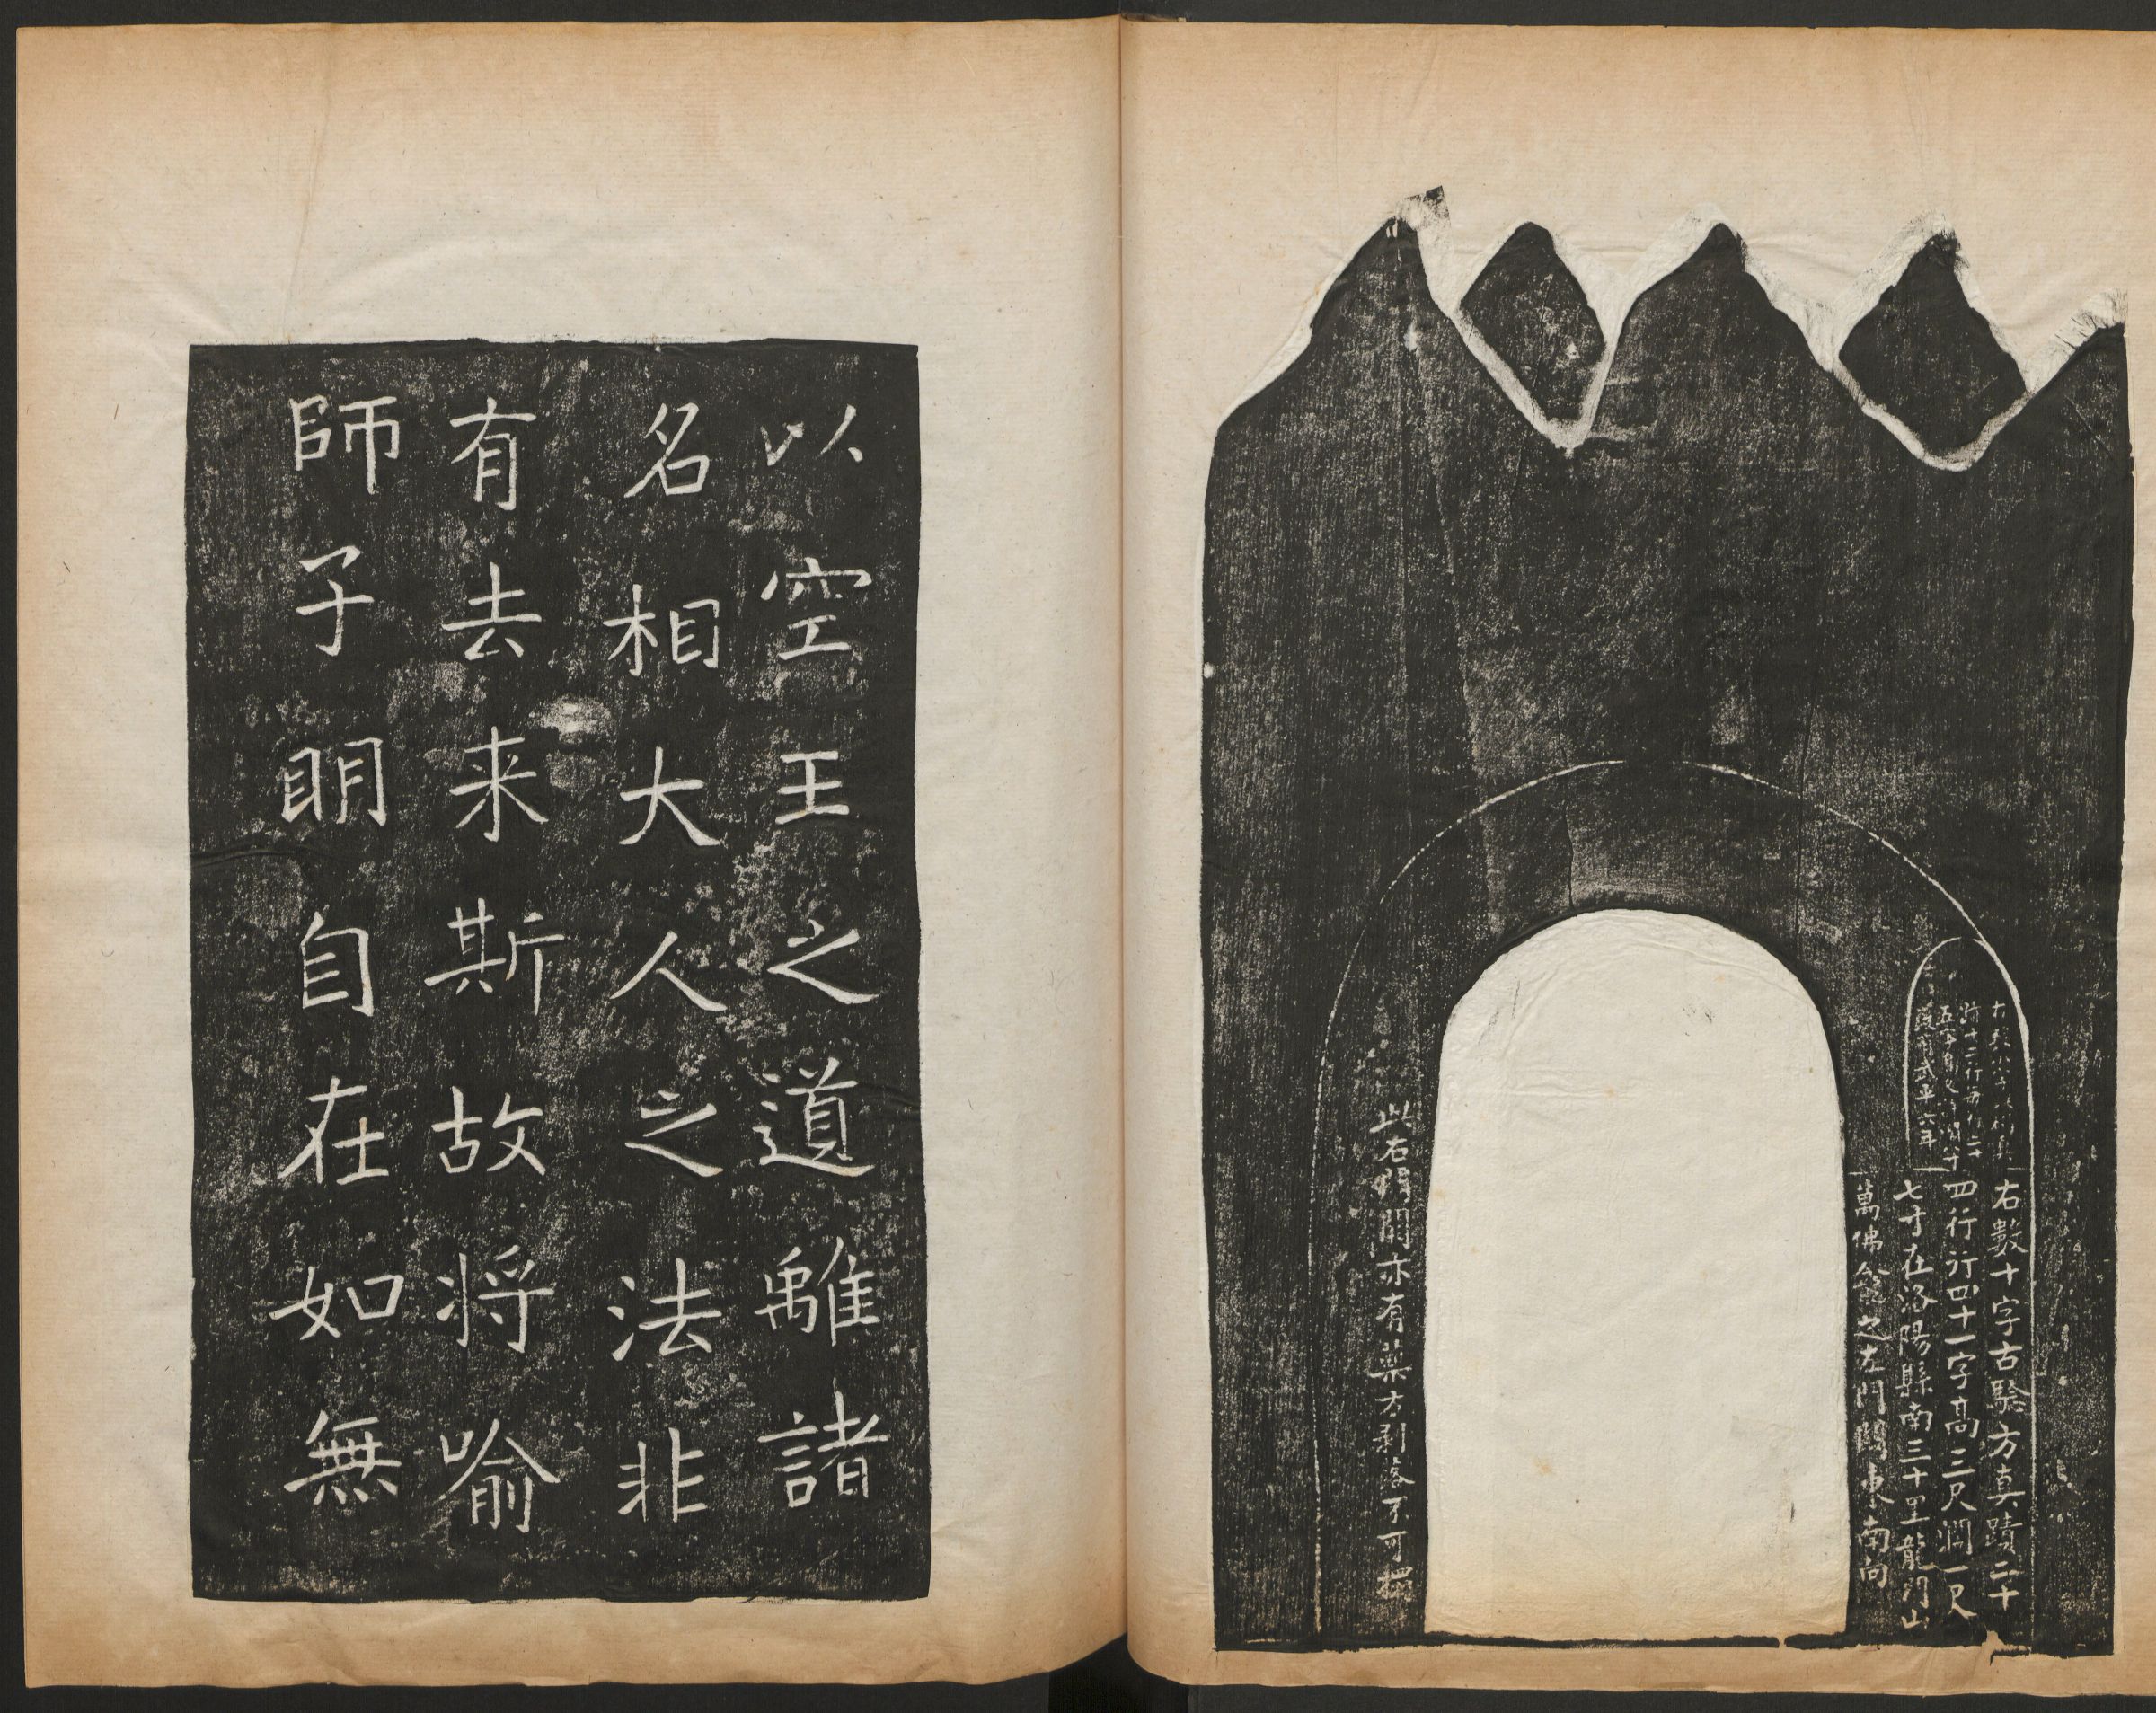 武平六年
右數十字古驗方真蹟二十
四行行四十一字高三尺濶一尺
七寸在洛陽縣南三十里龍門山
萬佛龕之左門闕東南向
此右門闕亦有藥方剥落不可搨
以空王之道離諸
名相大人之法非
有去来斯故将喻
師子明自在如無